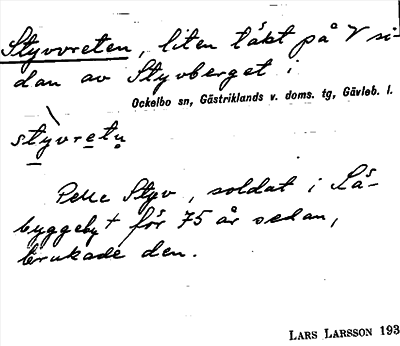 Styvvreten, liten täkt på V si-
dan av Styvberget i
Ockelbo sn, Gästriklands v. doms. tg, Gävleb. l.
styvretn
Pelle Styv, soldat i Lå-
byggeby + för 75 år sedan,
brukade den.
LARS LARSSON 193